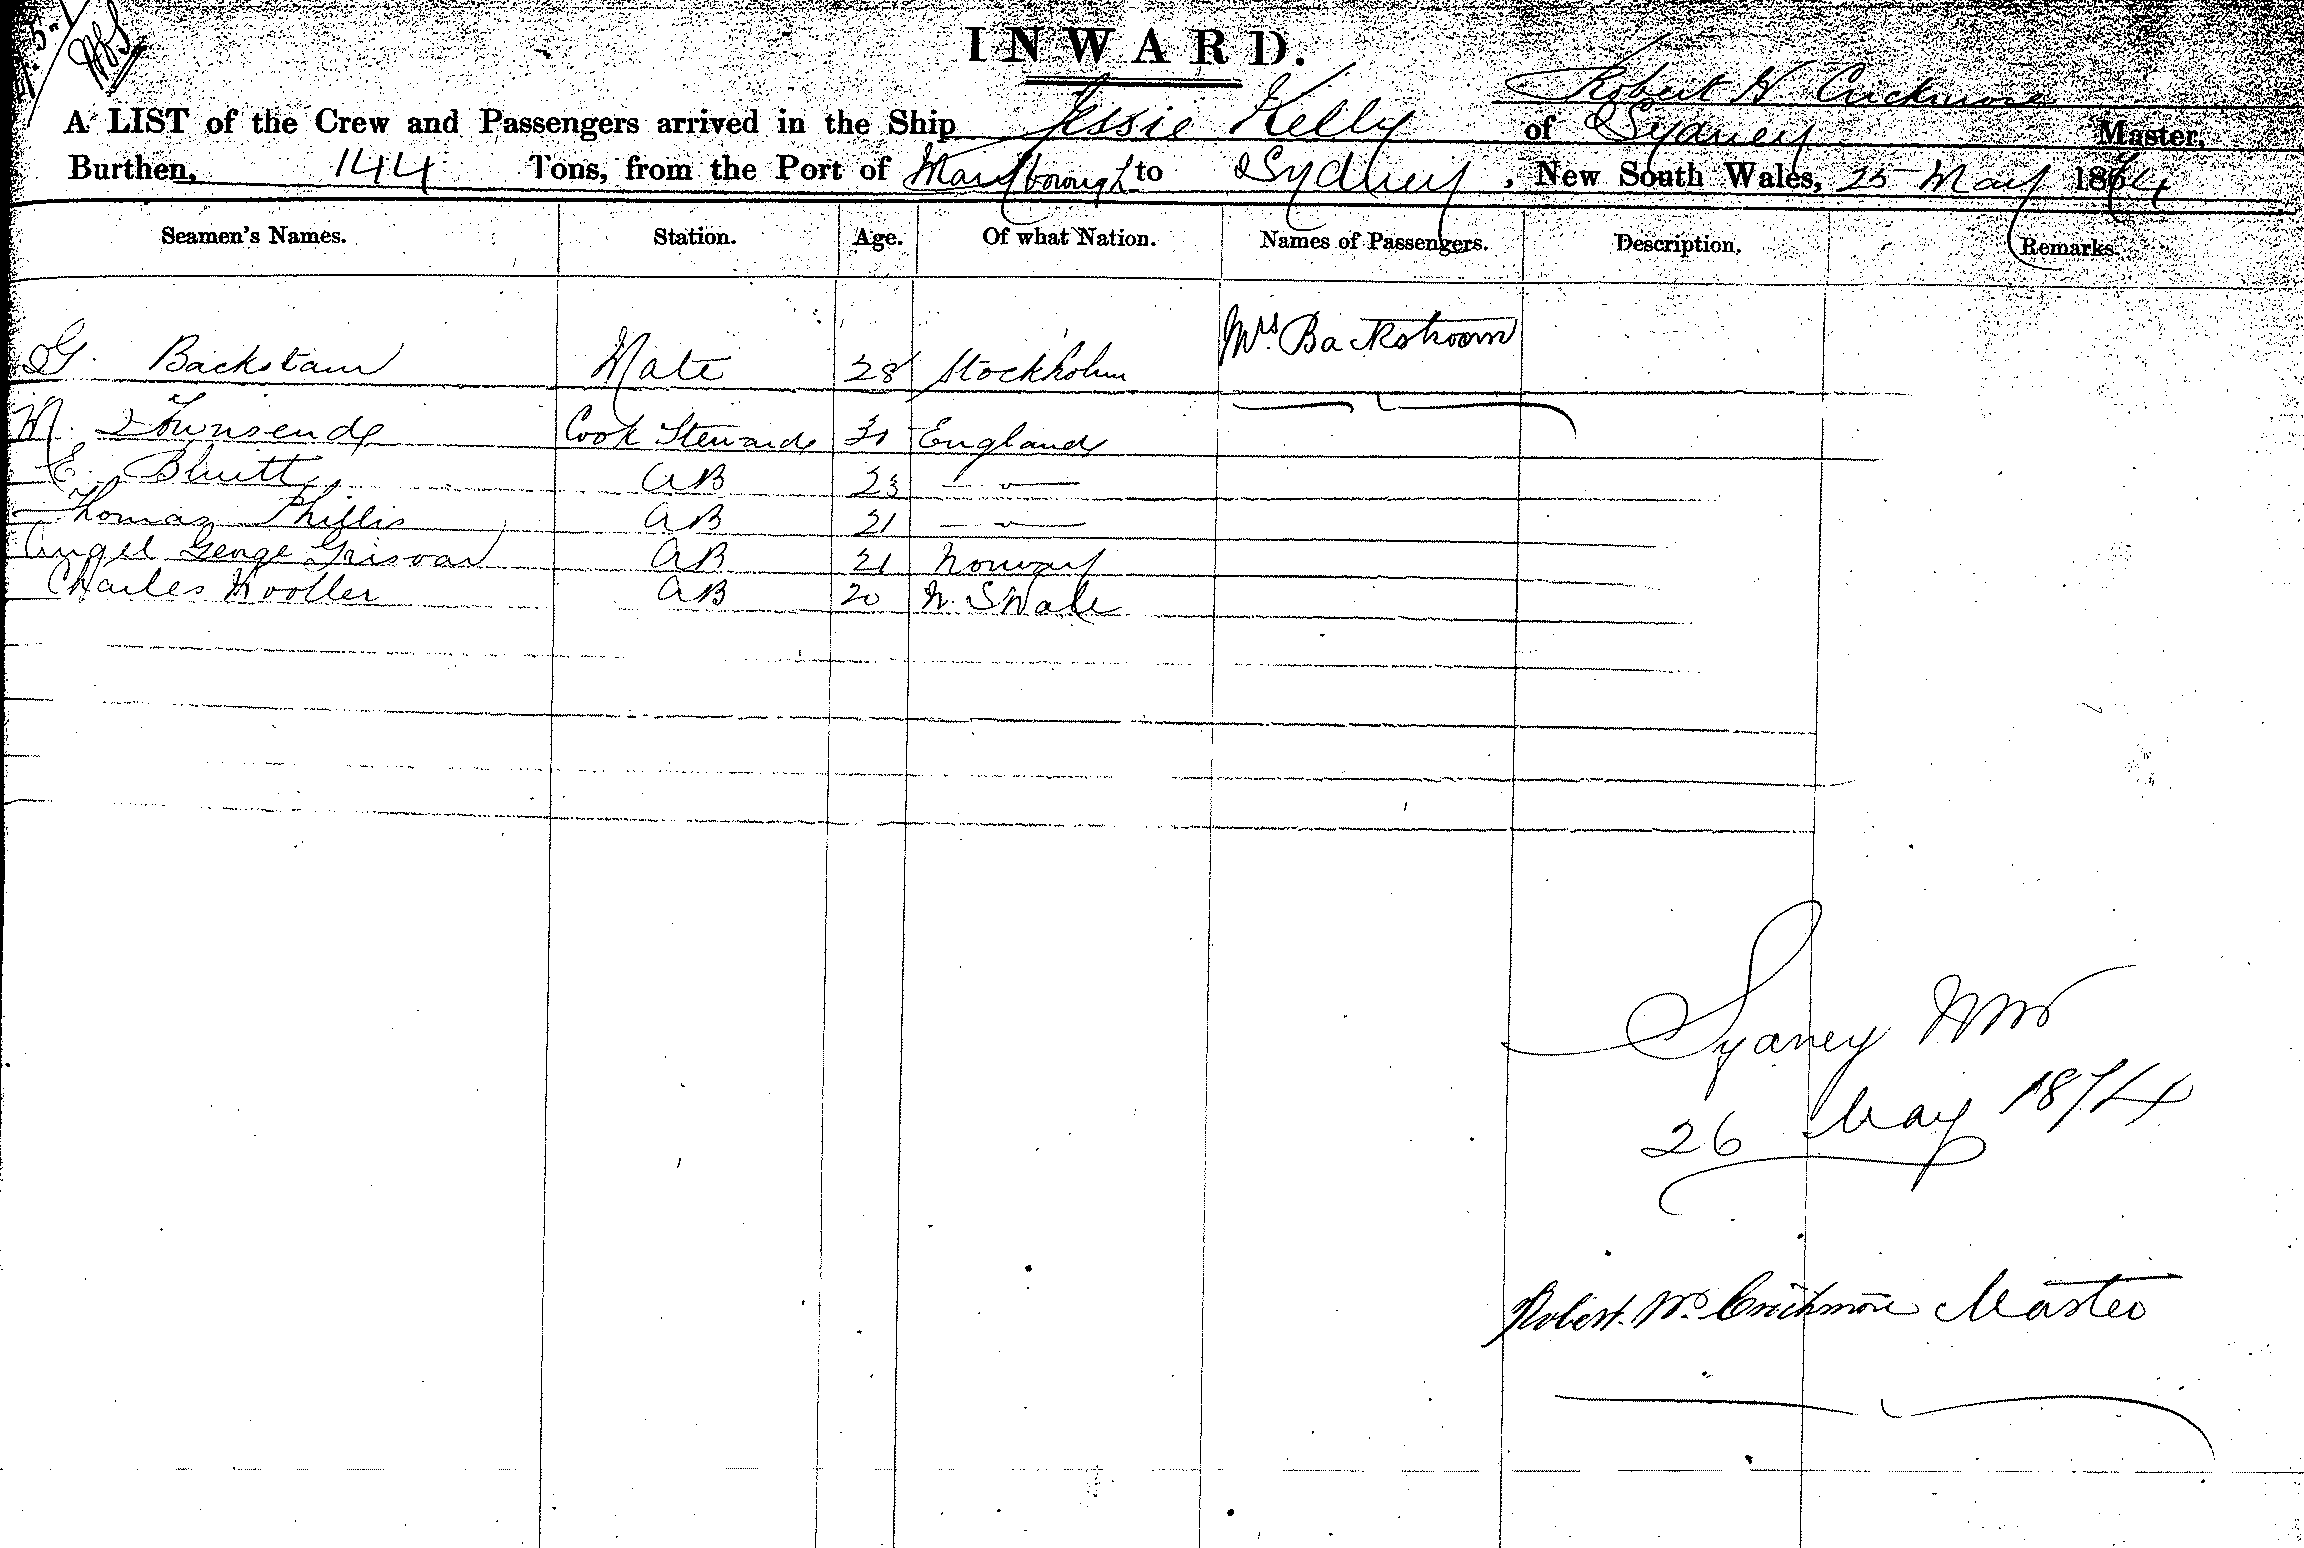 INWARD.
Robert W Crickmore
A LIST of the Crew and Passengers arrived in the Ship Jessie Kelly of Sydney Master,
Burthen, 144 Tons, from the Port of Marlborough to Sydney, New South Wales, 25 May 1874
Seamen's Names. Station. Age. Of what Nation. Names of Passengers. Description. Remarks.
Mrs. Backstroom
G. Backstam Mate 28 Stockholm
M. Townsend Cook Steward England
E. Bluitt AB 23 — " —
Thomas Phillis AB 21 — " —
George AB 21 Norway
Charles AB 20 N. S Wale
Sydney NSW
26 May 1874
Robert. Wm. Crickmore Master